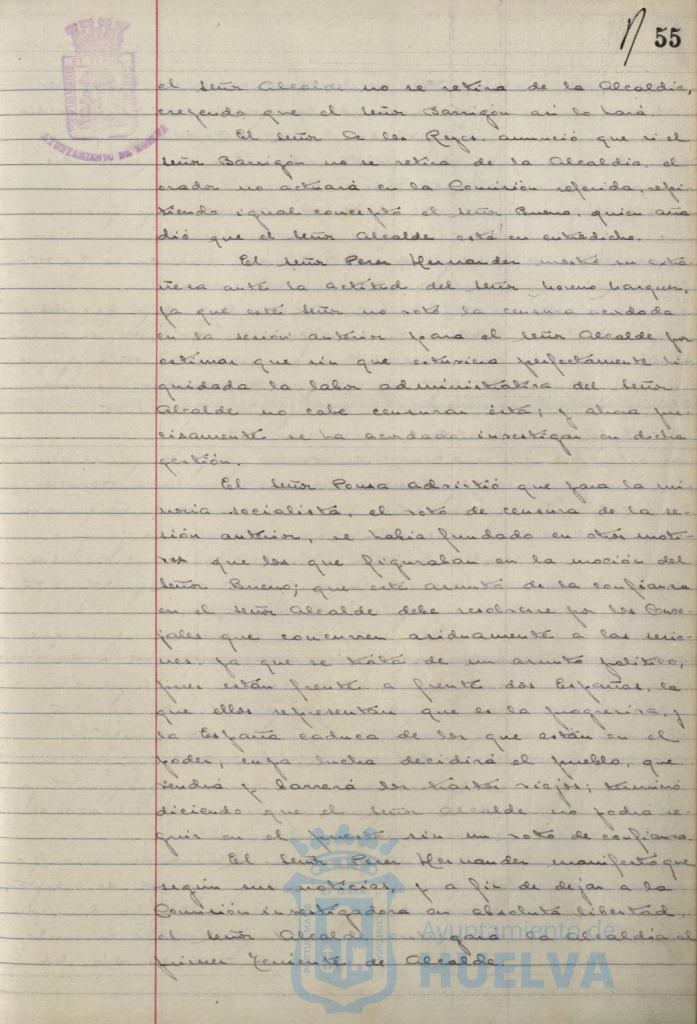 55
AYUNTAMIENTO DE HUELVA
el Señor Alcalde no se retira de la Alcaldía,
creyendo que el Señor Barrigón así lo hará.
El Señor de los Reyes, anunció que si el
Señor Barrigón no se retira de la Alcaldía, el
orador no actuará en la Comisión referida, repi-
tiendo igual concepto el Señor Bueno, quien aña-
dió que el Señor Alcalde está en entredicho.
El Señor Perez Hernandez mostró su extra-
ñeza ante la actitud del Señor Moreno Marquez,
ya que este Señor no votó la censura acordada
en la sesión anterior para el Señor Alcalde por
estimar que sin que estuviera perfectamente li-
quidada la labor administrativa del Señor
Alcalde no cabe censurar ésta; y ahora pre-
cisamente se ha acordado investigar en dicha
gestión.
El Señor Ponsa advirtió que para la mi-
noria socialista, el voto de censura de la se-
sión anterior, se había fundado en otros moti-
vos que los que figuraban en la moción del
Señor Bueno; que este asunto de la confianza
en el Señor Alcalde debe resolverse por los Conce-
jales que concurren asiduamente a las sesio-
nes, ya que se trata de un asunto político,
pues están frente a frente dos Españas, la
que ellos representan que es la progresiva, y
la España caduca de los que están en el
poder, cuya lucha decidirá el pueblo, que
vendrá y barrerá los trastos viejos; terminó
diciendo que el Señor Alcalde no podía se-
guir en el puesto sin un voto de confianza.
El Señor Perez Hernandez manifestó que
según sus noticias, y a fin de dejar a la
Comisión investigadora en absoluta libertad,
el Señor Alcalde entregará la Alcaldía al
primer Teniente de Alcalde.
Ayuntamiento de
HUELVA